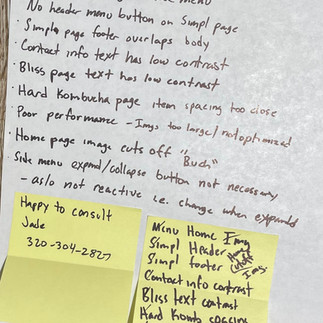 menu
No header menu button on Simpl page
· Simple page footer overlaps body
· Contact info text has low contrast
· Bliss page text has low contrast
· Hard Kombucha page item spacing too close
· Poor performance - Imgs too large/not optimized
· Home page image cuts off "Buch"
· Side menu expand/collapse button not necessary
- also not reactive i.e. change when expanded
Happy to consult
Jade
320-304-2827
Menu Home Img
Simpl Header
Simpl footer
Contact info contrast
Bliss text contrast
Hard Komb spacing